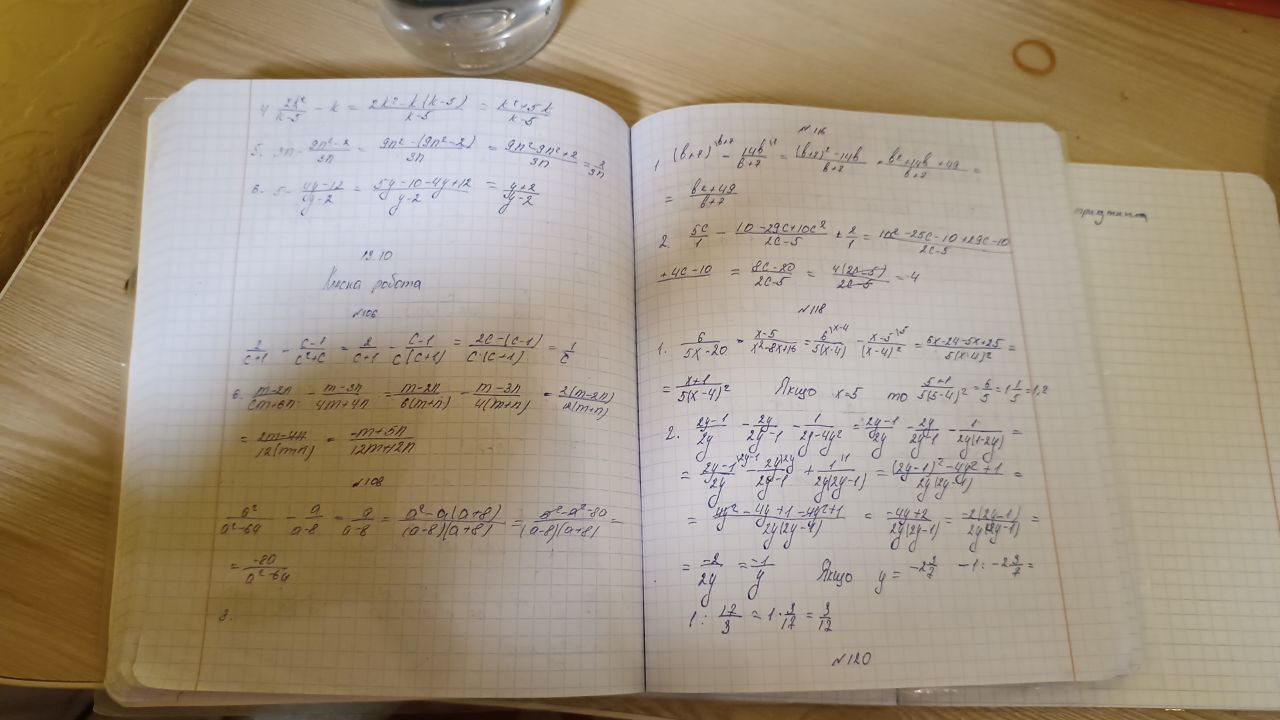 4 2k²/k-5 - k = 2k²-k(k-5)/k-5 = k²+5k/k-5
5. 9n - 9n²-2/9n = 9n²-(9n²-2)/9n = 9n²-9n²+2/9n = 2/9n
6. 5 - 4y-12/y-2 = 5y-10-4y+12/y-2 = y+2/y-2
19.10
Класна робота
№106
2/c+1 - c-1/c²+c = 2/c+1 - c-1/c(c+1) = 2c-(c-1)/c(c+1) = 1/c
6. m-2n/6m+6n - m-3n/4m+4n = m-2n/6(m+n) - m-3n/4(m+n) = 2(m-2n)
= 2m-4n/12(m+n) = -m+5n/12m+12n
№108
a²/a²-64 - a/a-8 = a/a-8 = a²-a(a+8)/(a-8)(a+8) = a²-a²-8a/(a-8)(a+8) =
= -8a/a²-64
8.
№116
1. (b+7)\b+7 - 14b\1/b+7 = (b+7)²-14b/b+7 = b²+14b+49/b+7 =
= b²+49/b+7
2. 5c/1 - 10-29c+10c²/2c-5 + 2/1 = 10c²-25c-10+29c-10/2c-5
+4c-10 = 8c-20/2c-5 = 4(2c-5)/2c-5 = 4
№118
1. 6/5x-20 - x-5/x²-8x+16 = 6\x-4/5(x-4) - x-5\5/(x-4)² = 6x-24-5x+25/5(x-4)² =
= x+1/5(x-4)² Якщо x=5 то 5+1/5(5-4)² = 6/5 = 1 1/5 = 1,2
2. 2y-1/2y - 2y/2y-1 - 1/2y-4y² = 2y-1/2y - 2y/2y-1 - 1/2y(1-2y) =
= 2y-1\2y-1/2y - 2y\2y/2y-1 + 1\1/2y(2y-1) = (2y-1)²-4y²+1/2y(2y-1) =
= 4y²-4y+1-4y²+1/2y(2y-1) = -4y+2/2y(2y-1) = -2(2y-1)/2y(2y-1) =
= -2/2y = -1/y Якщо y = -2 3/7 -1 : -2 3/7 =
1 : 17/
№120